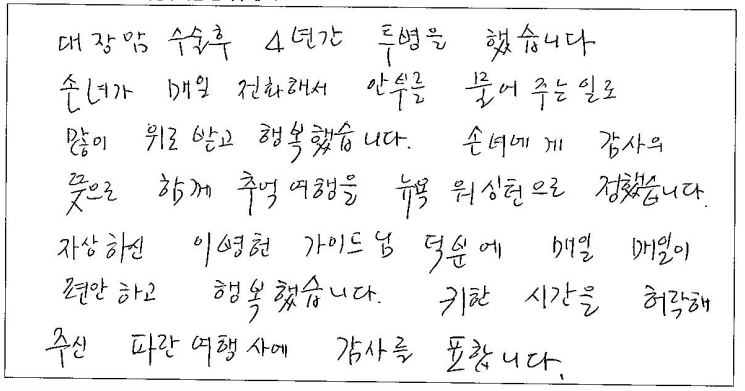 대장암 수술후 4년간 투병을 했습니다
손녀가 매일 전화해서 안부를 물어 주는일로
많이 위로 받고 행복했습니다. 손녀에게 감사의
뜻으로 함께 추억여행을 뉴욕 워싱턴으로 정했습니다.
자상하신 이영헌 가이드님 덕분에 매일 매일이
편안하고 행복했습니다. 귀한 시간을 허락해
주신 파란여행사에 감사를 표합니다.